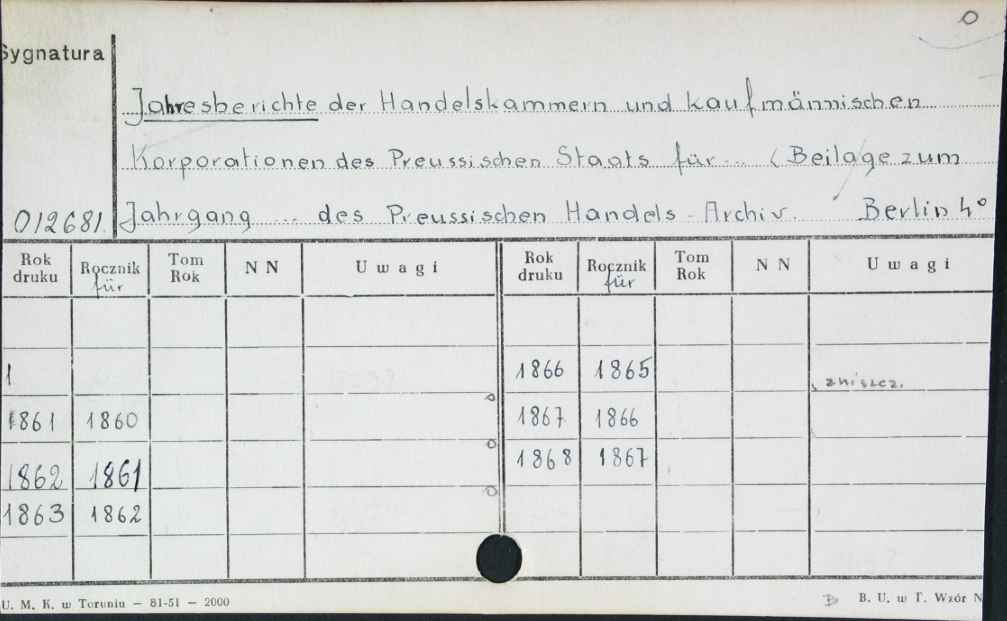 0
Sygnatura
Jahresberichte der Handelskammern und kaufmännischen
Korporationen des Preussischen Staats für... (Beilage zum
012681. Jahrgang ... des Preussischen Handels-Archiv. Berlin 4°
Rok druku Rocznik für Tom Rok N N Uwagi Rok druku Rocznik für Tom Rok N N Uwagi
1 1866 1865 zniszcz.
1861 1860 1867 1866
1862 1861 1868 1867
1863 1862
U. M. K. w Toruniu — 81-51 — 2000 B. U. w T. Wzór N